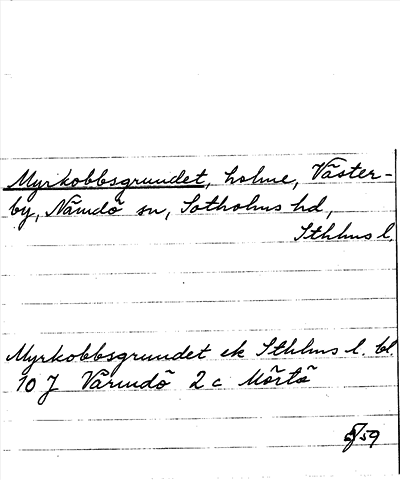 Myrkobbsgrundet, holme, Väster-
by, Nämdö sn, Sotholms hd,
Sthlms l.
Myrkobbsgrundet ek Sthlms l. bl.
10 J Värmdö 2 c Mörtö
59